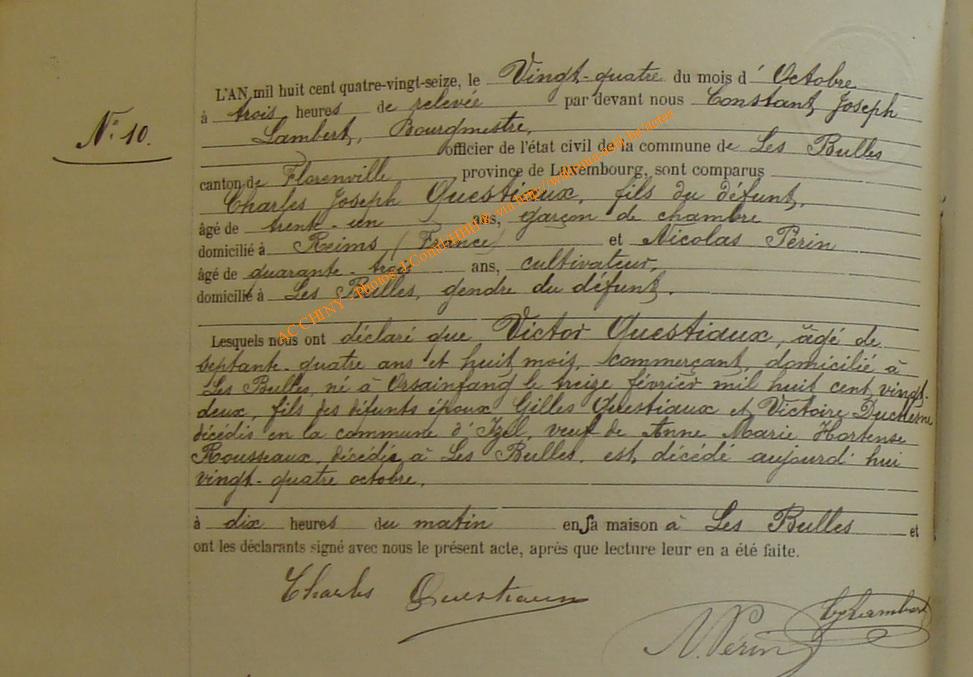 N° 10.
L'AN mil huit cent quatre-vingt-seize, le Vingt-quatre du mois d'Octobre
à trois heures de relevée par devant nous Constant Joseph
Lambert, Bourgmestre,
officier de l'état civil de la commune de Les Bulles
canton de Florenville province de Luxembourg, sont comparus
Charles Joseph Questiaux, fils du défunt,
âgé de trente-un ans, garçon de chambre
domicilié à Reims (France) et Nicolas Périn
âgé de quarante-trois ans, cultivateur,
domicilié à Les Bulles, gendre du défunt.
Lesquels nous ont déclaré que Victor Questiaux, âgé de
septante-quatre ans et huit mois, commerçant, domicilié à
Les Bulles, né à Orsainfang le treize février mil huit cent vingt-
deux, fils des défunts époux Gilles Questiaux et Victoire Duchesne
décédés en la commune d'Izel, veuf de Anne Marie Hortense
Rousseaux, décédée à Les Bulles, est décédé aujourd'hui
vingt-quatre octobre,
à dix heures du matin en sa maison à Les Bulles et
ont les déclarants signé avec nous le présent acte, après que lecture leur en a été faite.
Charles Questiaux
N. Périn
Lambert
ACCHINY - photos J.Comblimpre